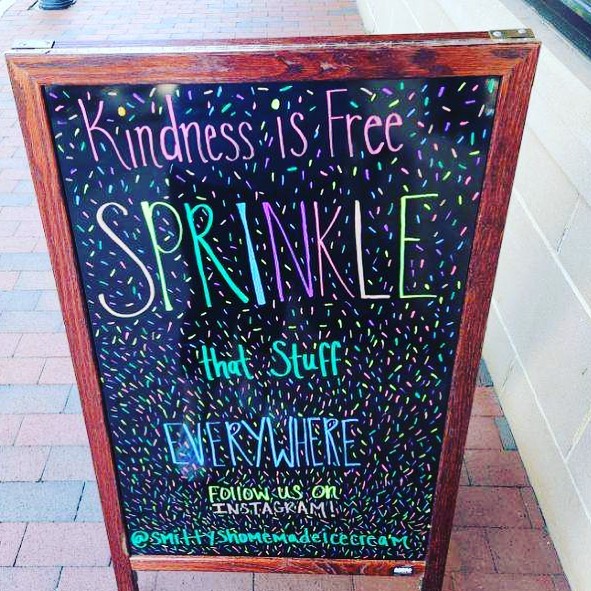 Kindness is Free
SPRINKLE
that Stuff
EVERYWHERE
Follow us on
INSTAGRAM!
@smittyshomemadeicecream